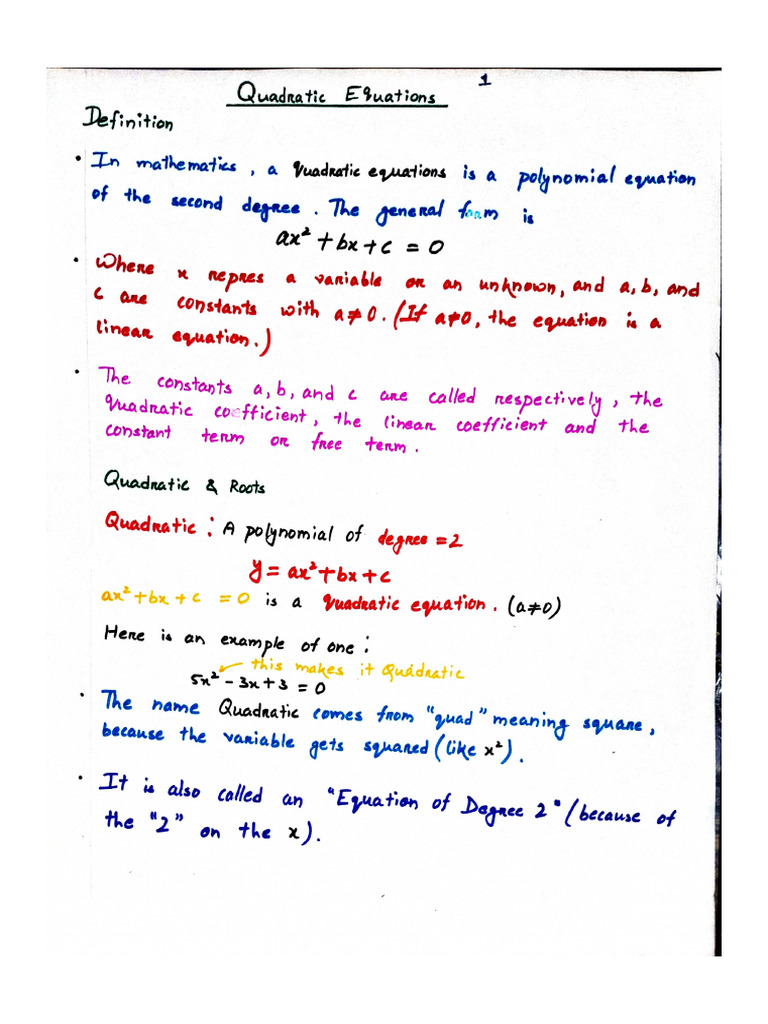 1
Quadratic Equations
Definition
• In mathematics, a quadratic equations is a polynomial equation
of the second degree. The general form is
ax² + bx + c = 0
• Where x repres a variable or an unknown, and a, b, and
c are constants with a≠0. (If a≠0, the equation is a
linear equation.)
• The constants a, b, and c are called respectively, the
quadratic coefficient, the linear coefficient and the
constant term or free term.
Quadratic & Roots
Quadratic: A polynomial of degree = 2
y = ax² + bx + c
ax² + bx + c = 0 is a quadratic equation. (a≠0)
Here is an example of one:
this makes it Quadratic
5x² - 3x + 3 = 0
• The name Quadratic comes from "quad" meaning square,
because the variable gets squared (like x²).
• It is also called an "Equation of Degree 2" (because of
the "2" on the x).